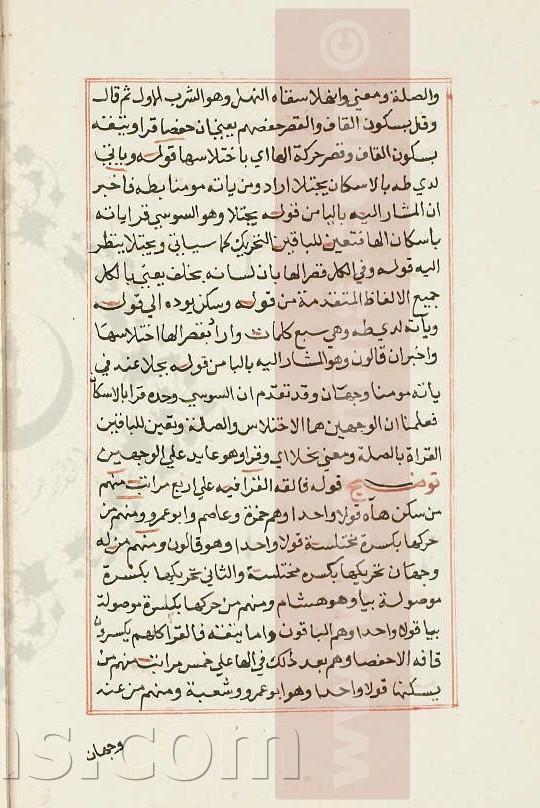 والصلة ومعني وانهلا سقاه النهل وهو الشرب الاول ثم قال
وقل بسكون القاف والقصر حفصهم يعني ان حفصا قرا ويتقه
بسكون القاف وقصر حركة الهاء اي باختلاسها قوله وياتي
لدي طه بالاسكان يجتلا اراد ومن ياته مومنا بطه فاخبر
ان المشار اليه باليا من قوله يجتلا وهو السوسي قرا ياته
باسكان الها فتعين للباقين التحريك كما سياتي ويجتلا ينظر
اليه قوله وفي الكل قصر الها بان لسانه بخلف يعني بالكل
جميع الالفاظ المتقدمة من قوله وسكن يوده الي قوله
وياته لدي طه وهي سبع كلمات واراد بقصر الها اختلاسها
واخبران قالون وهو المشار اليه بالبا من قوله بجلا عنه في
ياته مومنا وجهان وقد تقدم ان السوسي وحده قرا بالاسكان
فعلمنا ان الوجهين هما الاختلاس والصلة وتعين للباقين
القراة بالصلة ومعني بجلا اي وقر وهو عايد علي الوجهين
توضيح قوله فالقه القرا فيه علي اربع مراتب منهم
من سكن هاه قولا واحدا وهم حمزة وعاصم وابوعمرو ومنهم من
حركها بكسرة مختلسة قولا واحدا وهو قالون ومنهم من له
وجهان تحريكها بكسره مختلسة والثاني تحريكها بكسرة
موصولة بيا وهو هشام ومنهم من حركها بكسرة موصولة
بيا قولا واحدا وهم الباقون واما يتقه فالقرا كلهم يكسرون
قافه الا حفصا وهم بعد ذلك في الها علي خمس مراتب منهم من
يسكنها قولا واحدا وهو ابوعمرو وشعبة ومنهم من عنه
وجهان